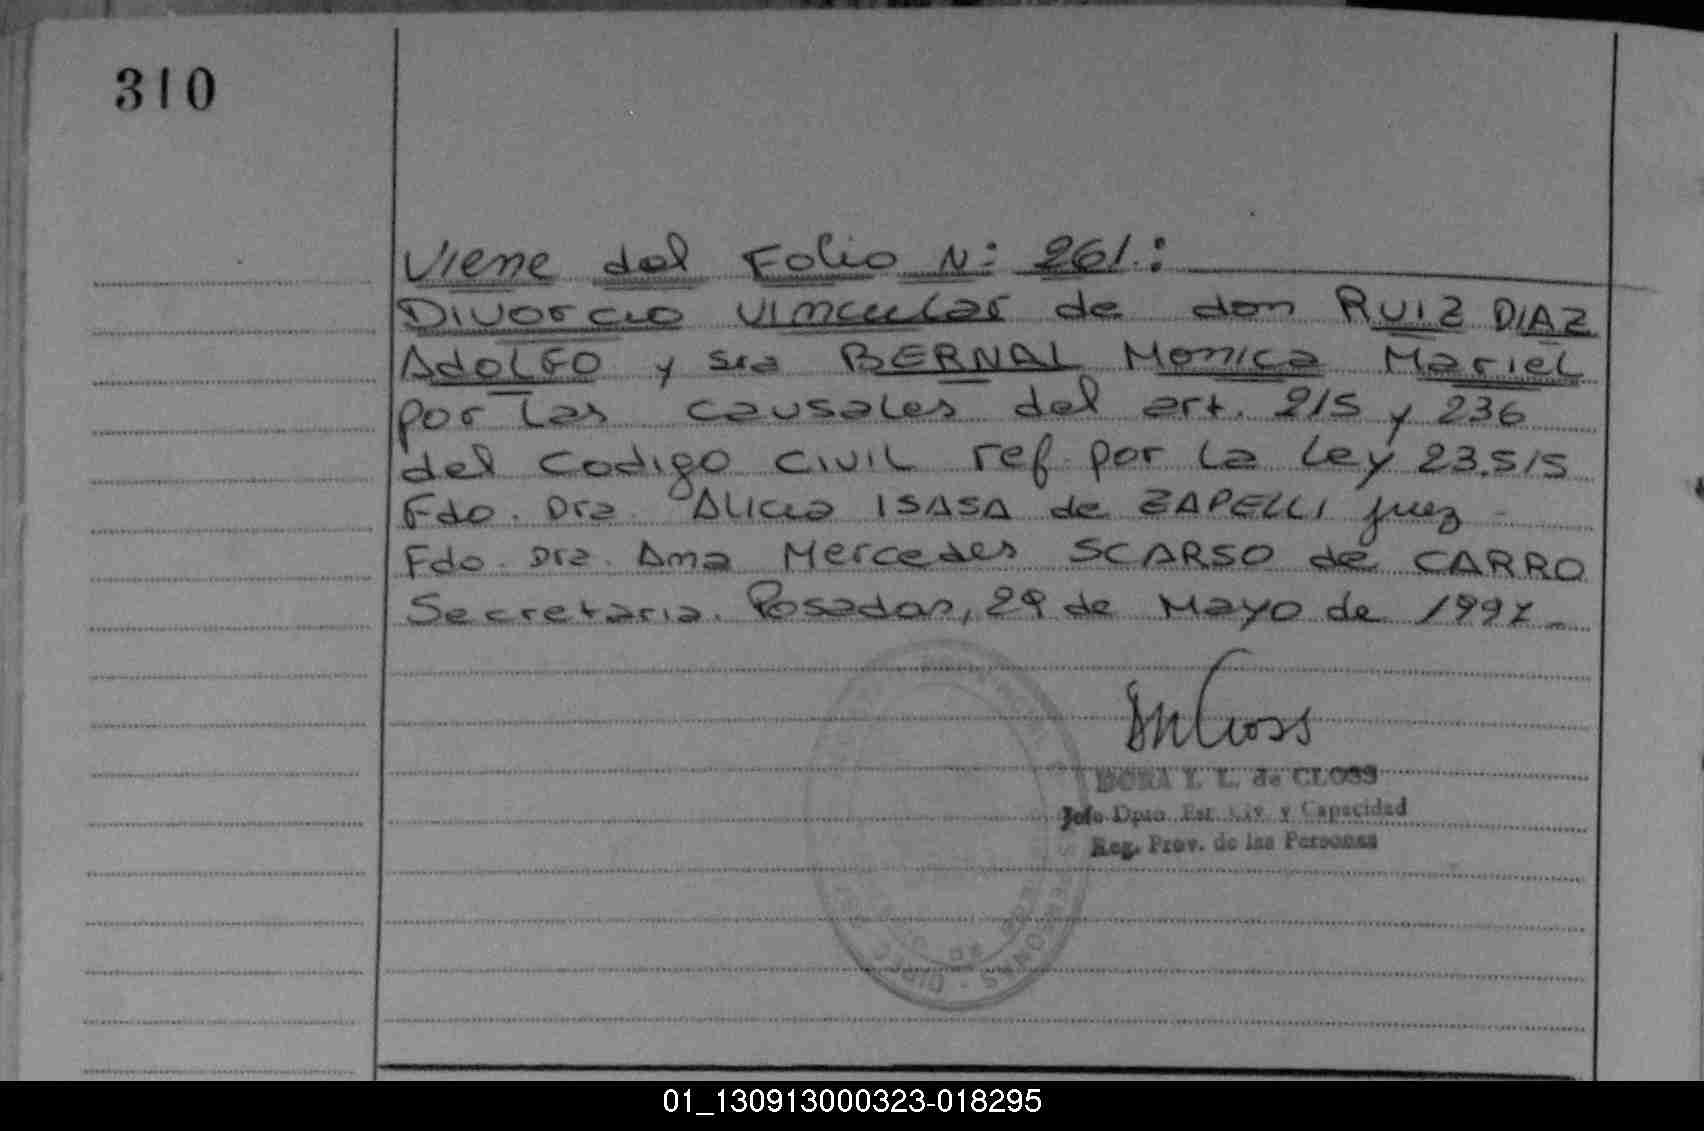 310
Viene del Folio N: 261.:
Divorcio vincular de don RUIZ DIAZ
ADOLFO y sra BERNAL Monica Mariel
por las causales del art. 215 y 236
del codigo civil ref. por la Ley 23.515
Fdo. Dra. Alicia ISASA de ZAPELLI juez
Fdo. Dra. Ana Mercedes SCARSO de CARRO
Secretaria. Posadas, 29 de Mayo de 1991.
DORA I. L. de CLOSS
Jefe Dpto. Est. Civ. y Capacidad
Reg. Prov. de las Personas
01_130913000323-018295